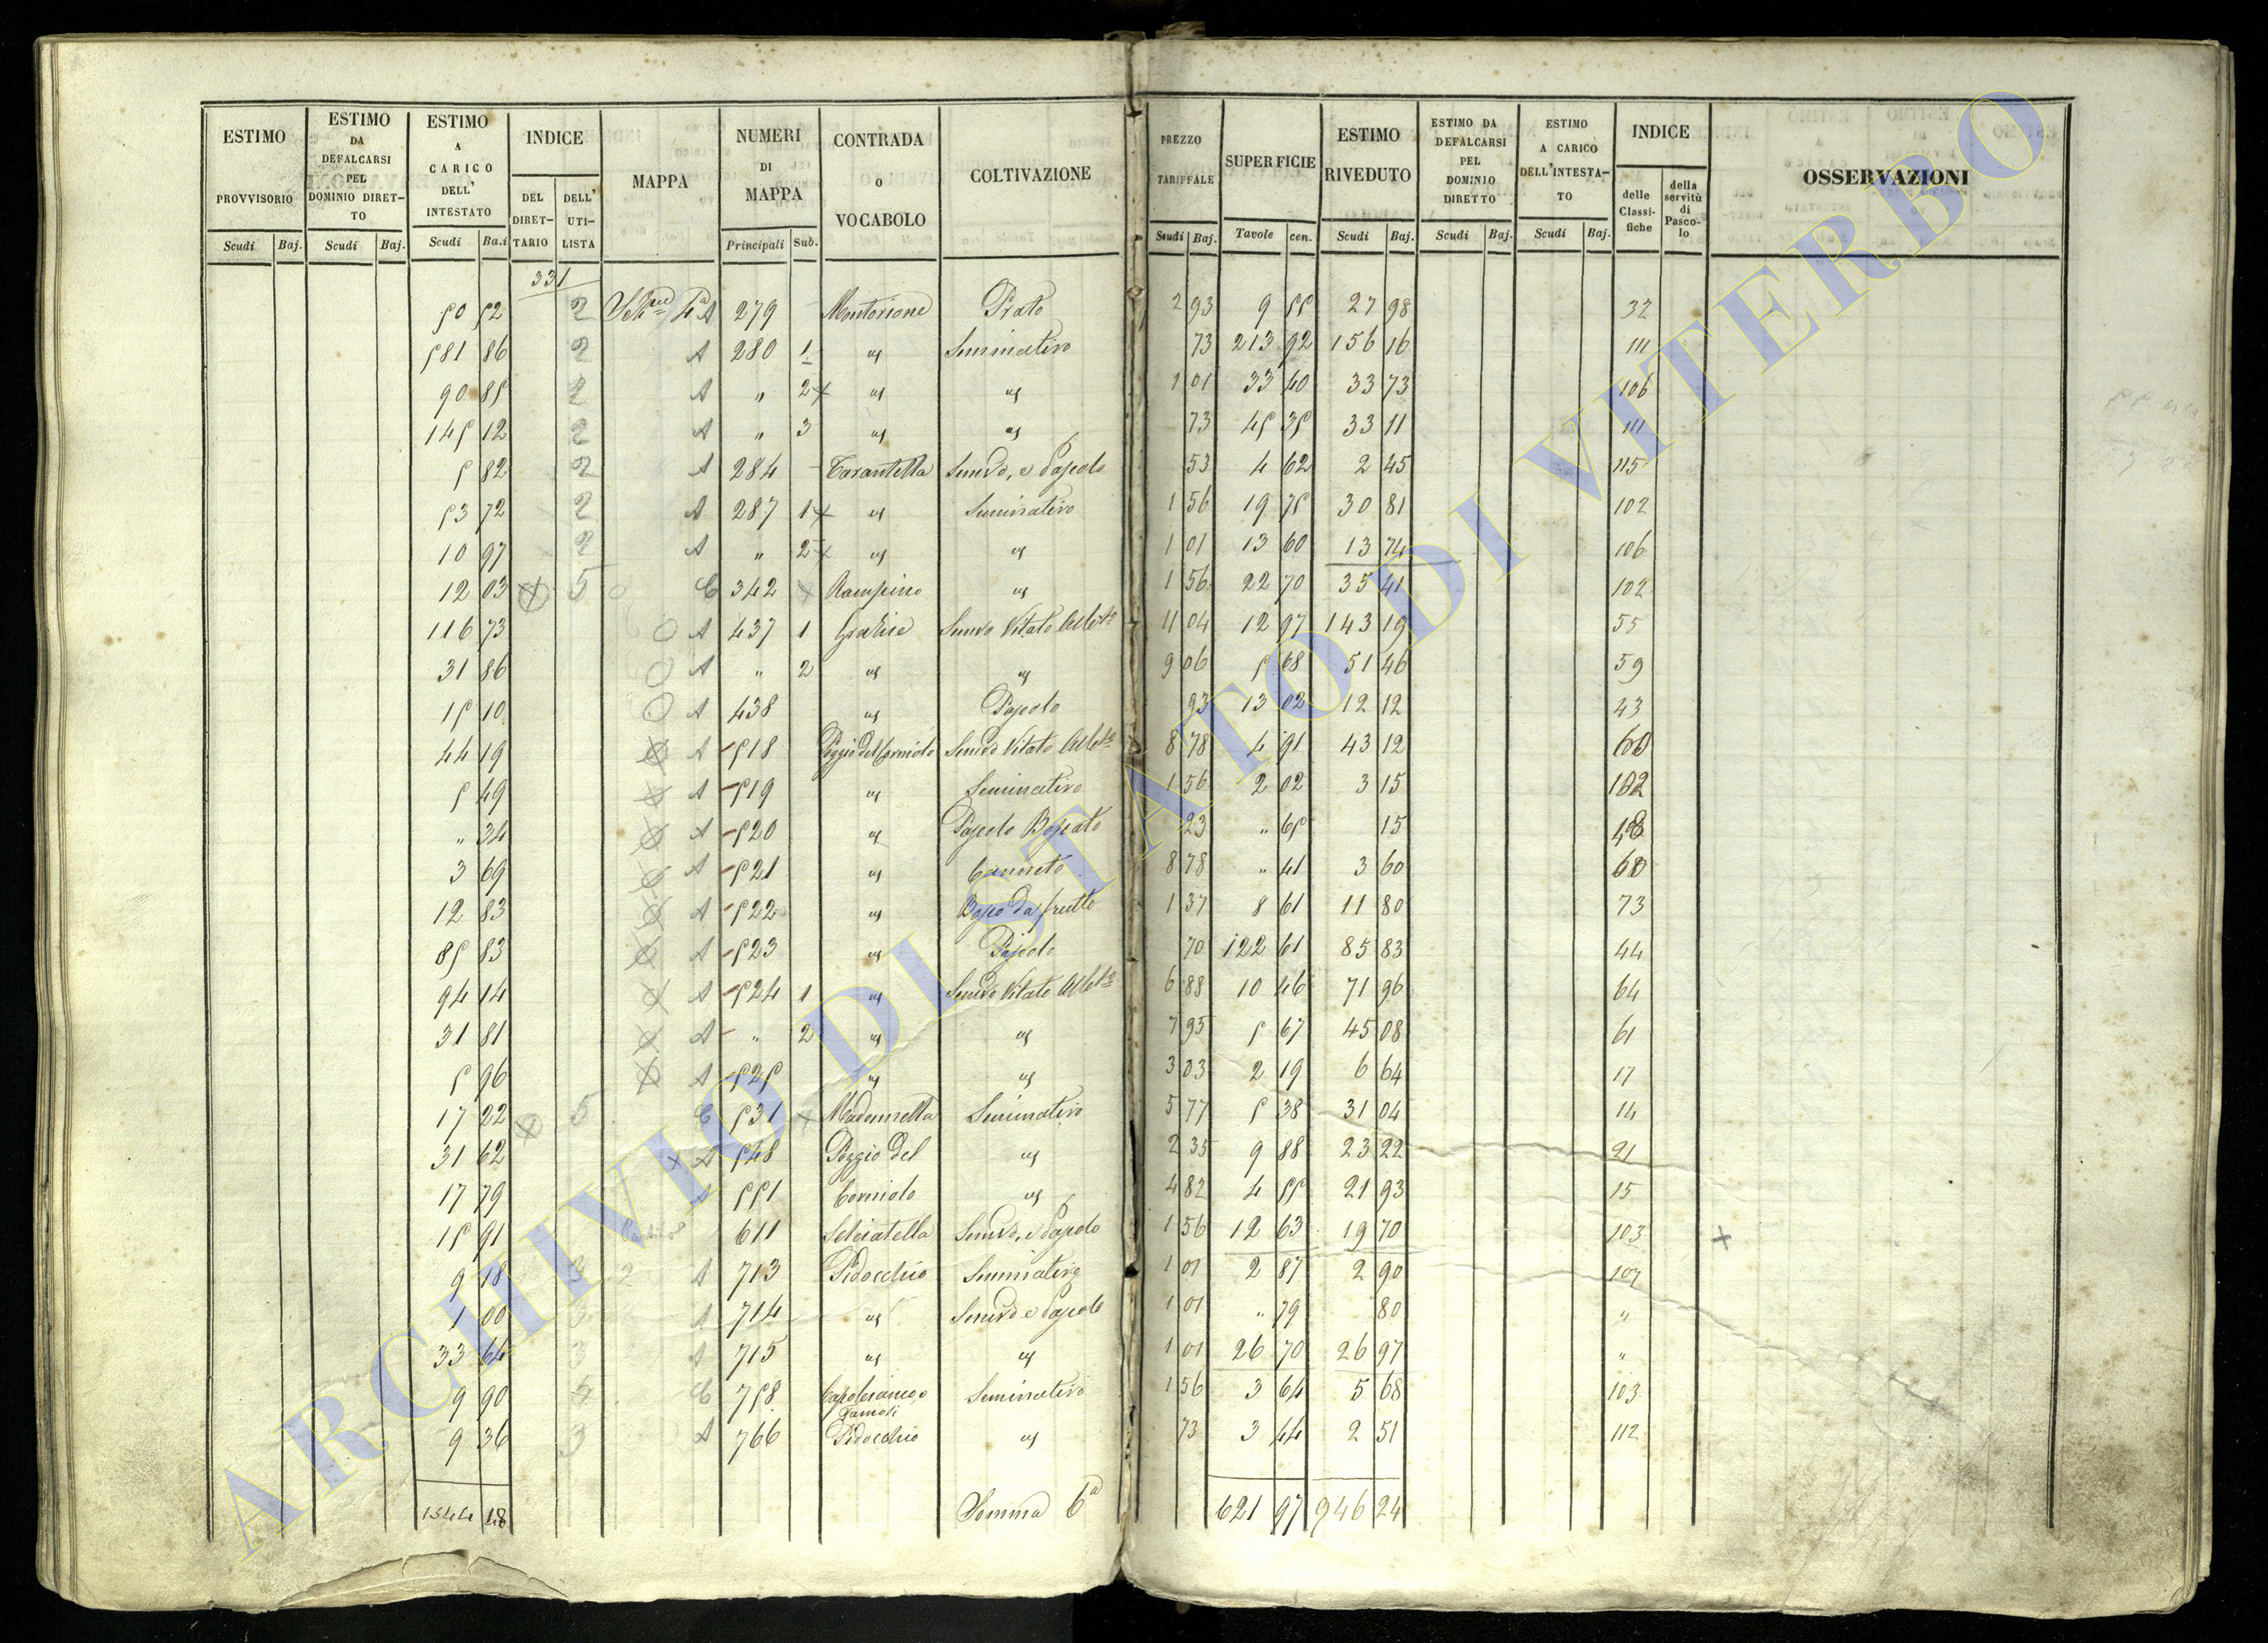 ESTIMO PROVVISORIO Scudi Baj.
ESTIMO DA DEFALCARSI PEL DOMINIO DIRET-TO Scudi Baj.
ESTIMO A CARICO DELL' INTESTATO Scudi Ba.i
INDICE DEL DIRET-TARIO DELL' UTI-LISTA
MAPPA
NUMERI DI MAPPA Principali Sub.
CONTRADA O VOCABOLO
COLTIVAZIONE
PREZZO TARIFFALE Scudi Baj.
SUPERFICIE Tavole cen.
ESTIMO RIVEDUTO Scudi Baj.
ESTIMO DA DEFALCARSI PEL DOMINIO DIRETTO Scudi Baj.
ESTIMO A CARICO DELL'INTESTA-TO Scudi Baj.
INDICE delle Classi-fiche della servitù di Pasco-lo
OSSERVAZIONI
331
50 52 2 A 279 Montorione Prato 2 93 9 55 27 98 32
581 86 2 A 280 1 " Seminativo 73 213 92 156 16 111
90 85 2 A " 2 " " 1 01 33 40 33 73 106
145 12 2 A " 3 " " 73 45 35 33 11 111
5 82 2 A 284 Tarantella Semvo, e Pascolo 53 4 62 2 45 115
53 72 2 A 287 1 " Seminativo 1 56 19 75 30 81 102
10 97 2 A " 2 " " 1 01 13 60 13 74 106
12 03 5 C 342 Rampino " 1 56 22 70 35 41 102
116 73 A 437 1 Semvo Vitato Albto 11 04 12 97 143 19 55
31 86 A " 2 " " 9 06 5 68 51 46 59
15 10 A 438 " Pascolo 93 13 02 12 12 43
44 19 A 518 Poggio del Corniolo Semvo Vitato Albto 8 78 4 91 43 12 60
5 49 A 519 " Seminativo 1 56 2 02 3 15 102
" 34 A 520 " Pascolo Boscato 23 " 65 15 48
3 69 A 521 " Canneto 8 78 " 41 3 60 60
12 83 A 522 " Bosco da frutto 1 37 8 61 11 80 73
85 83 A 523 " Pascolo 70 122 61 85 83 44
94 14 A 524 1 " Semvo Vitato Albto 6 88 10 46 71 96 64
31 81 A " 2 " " 7 95 5 67 45 08 61
5 96 A 525 " " 3 03 2 19 6 64 17
17 22 5 C 531 Madonnella Seminativo 5 77 5 38 31 04 14
31 62 A 548 Poggio del " 2 35 9 88 23 22 21
17 79 A 551 Corniolo " 4 82 4 55 21 93 15
15 91 611 Selciatella Semvo, e Pascolo 1 56 12 63 19 70 103
9 18 3 2 A 713 Pidocchio Seminativo 1 01 2 87 2 90 107
1 00 3 A 714 " Semvo e Pascolo 1 01 " 79 80 "
33 64 3 A 715 " " 1 01 26 70 26 97 "
9 90 5 C 758 Seminativo 1 56 3 64 5 68 103
9 36 3 A 766 Pidocchio " 73 3 44 2 51 112
1544 48 Somma 6a 621 97 946 24
ARCHIVIO DI STATO DI VITERBO